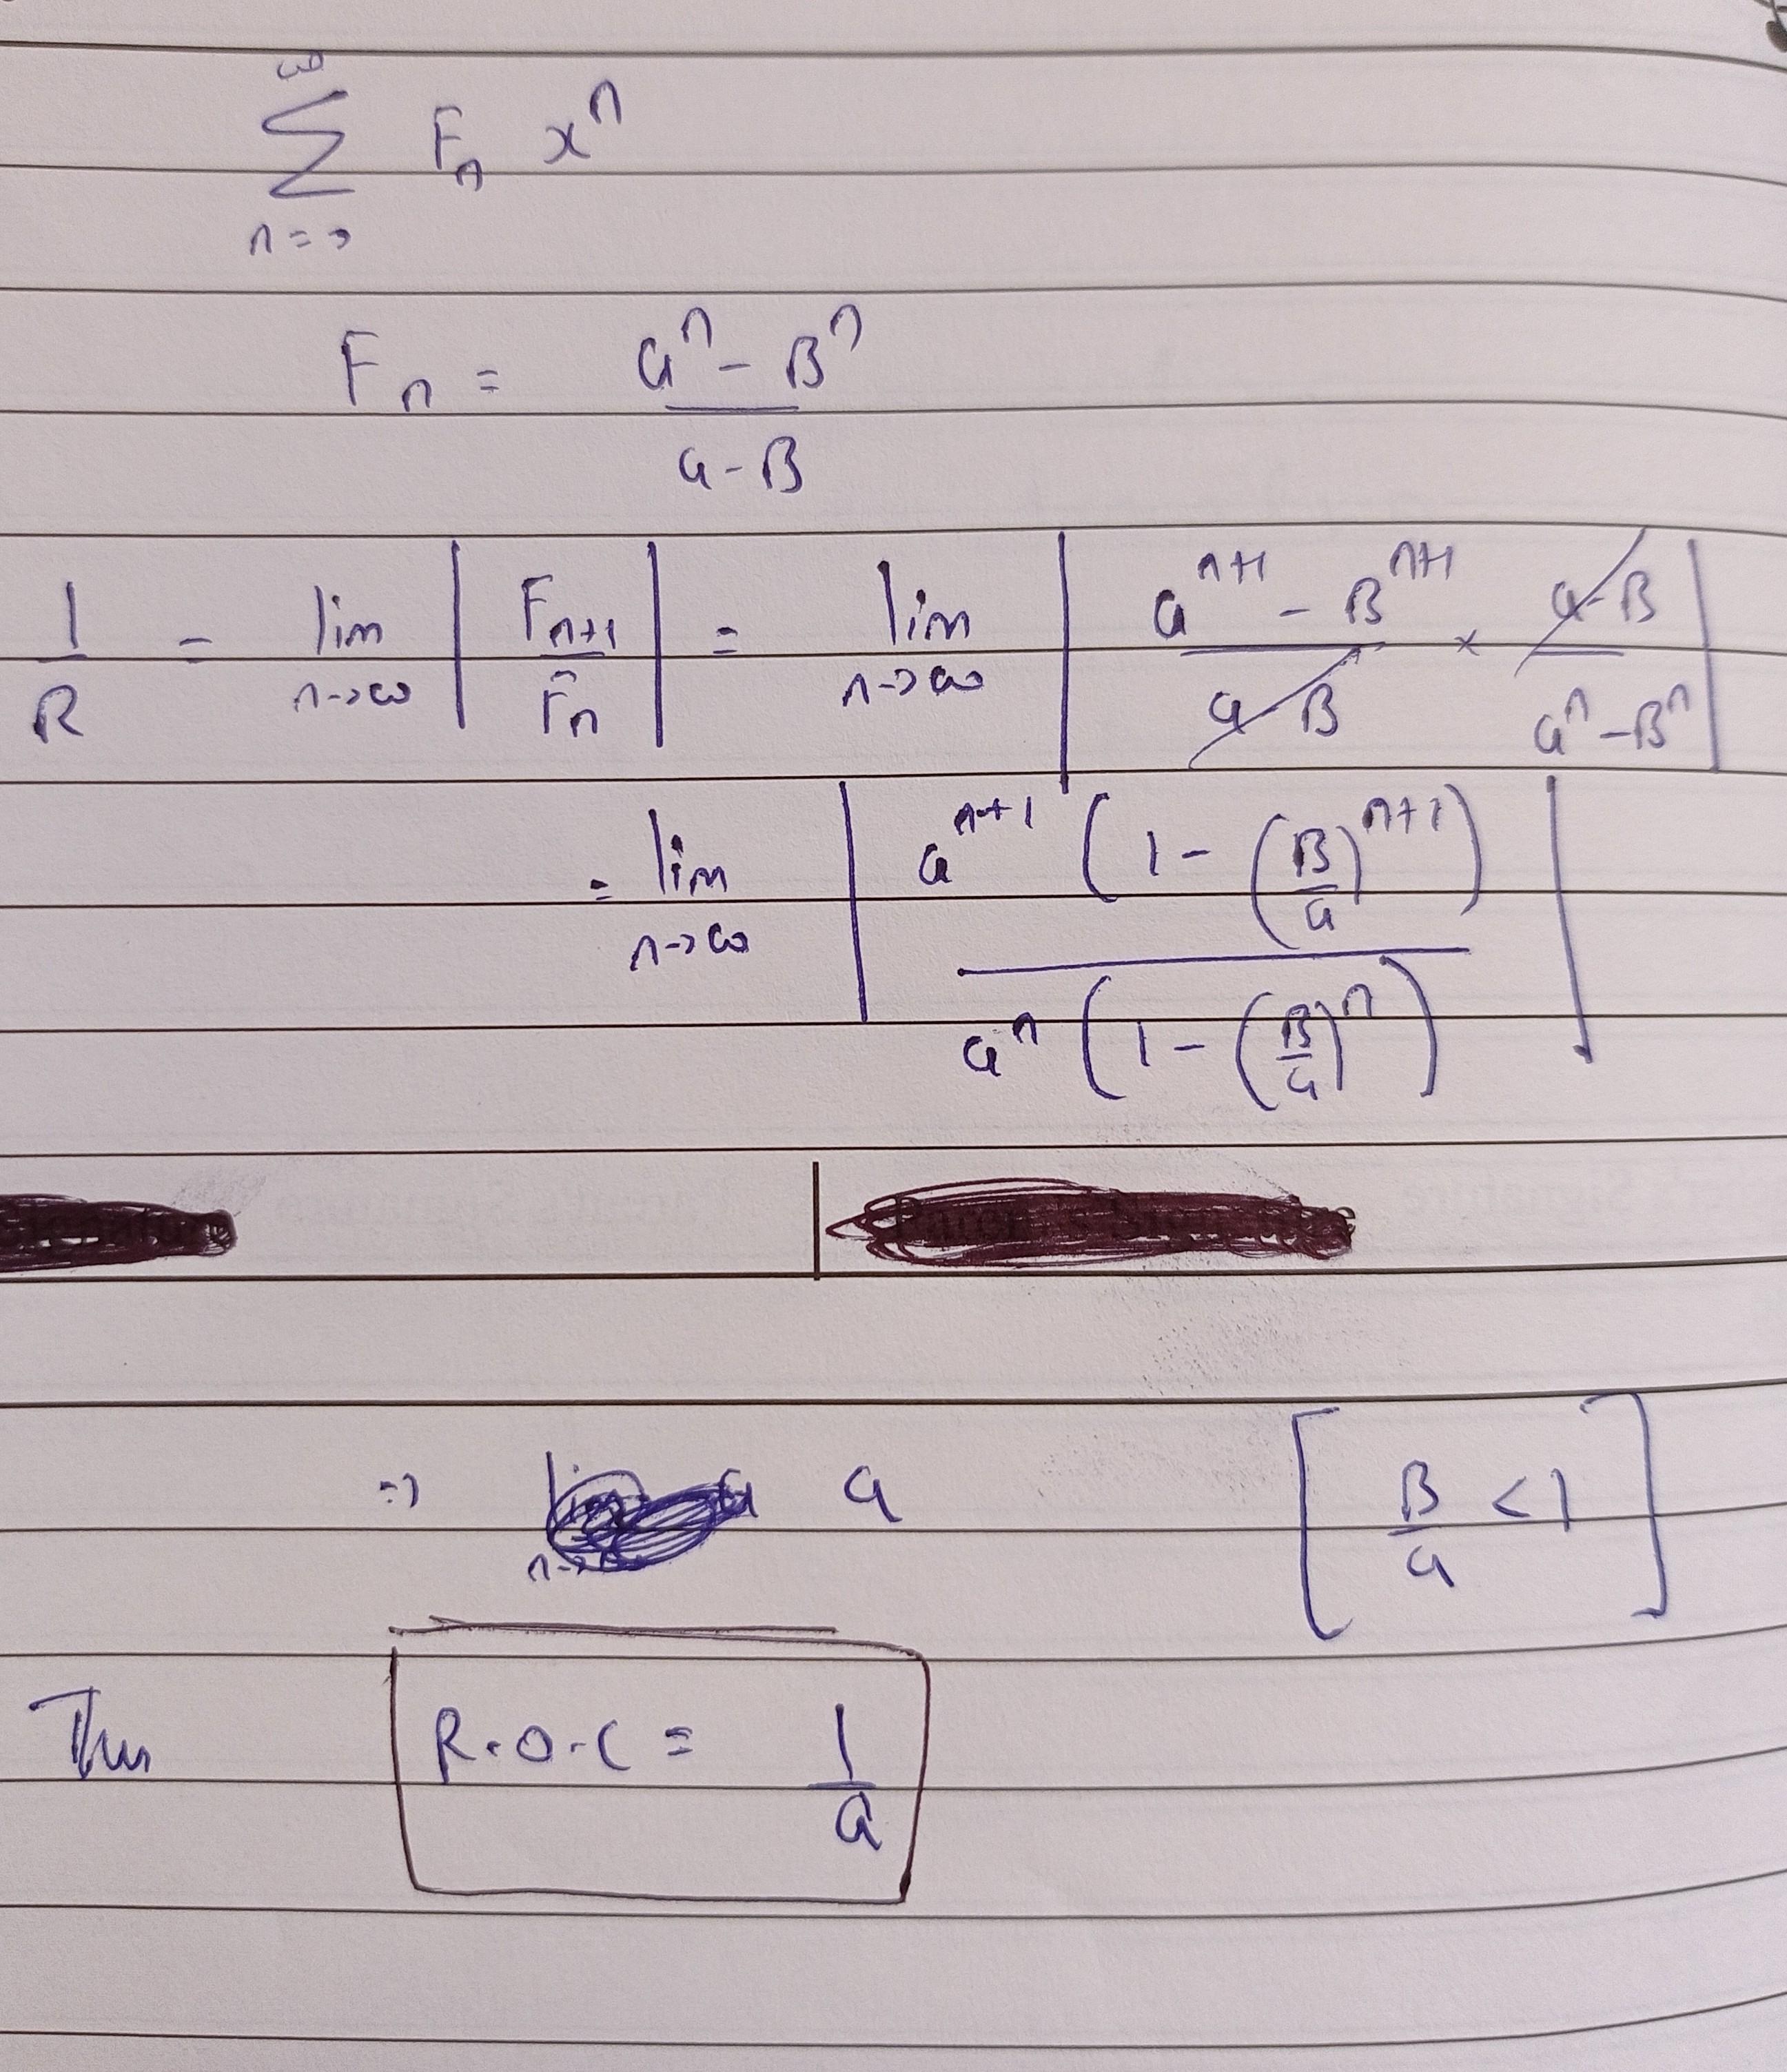 ∞
Σ Fₙ xⁿ
n=0
Fₙ = (aⁿ - Bⁿ) / (a - B)
1/R = lim n→∞ | Fₙ₊₁ / Fₙ | = lim n→∞ | (aⁿ⁺¹ - Bⁿ⁺¹) / (a - B) × (a - B) / (aⁿ - Bⁿ) |
= lim n→∞ | aⁿ⁺¹ (1 - (B/a)ⁿ⁺¹) / aⁿ (1 - (B/a)ⁿ) |
Signature Parent's Signature
⇒ a [B/a < 1]
Thus R.O.C = 1/a